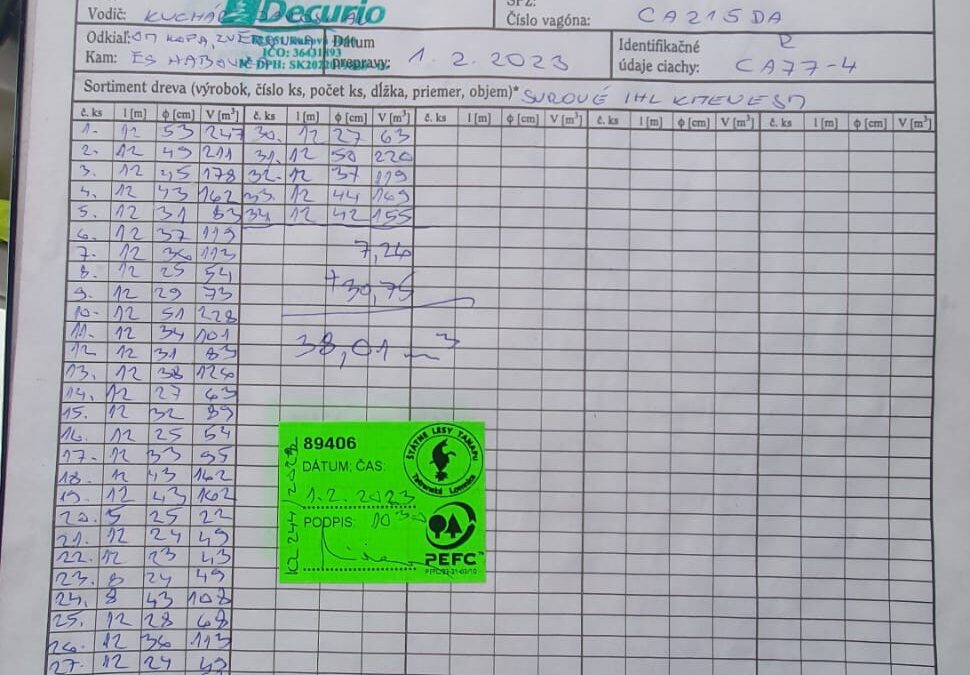 Decurio
Vodič:
ŠPZ:
Číslo vagóna: CA215DA
Odkiaľ: OM KOPA,
IČO: 36431893
Kam: ES HABOVKA
IČ DPH:
Dátum
prepravy: 1. 2. 2023
Identifikačné
údaje ciachy: CA77-4
R
Sortiment dreva (výrobok, číslo ks, počet ks, dĺžka, priemer, objem)* SUROVÉ IHL KMENE
č. ks l [m] ϕ [cm] V [m³] č. ks l [m] ϕ [cm] V [m³] č. ks l [m] ϕ [cm] V [m³] č. ks l [m] ϕ [cm] V [m³] č. ks l [m] ϕ [cm] V [m³]
1. 12 53 247 30. 12 27 63
2. 12 49 211 31. 12 50 220
3. 12 45 178 32. 12 37 119
4. 12 43 162 33. 12 44 169
5. 12 31 83 34 12 42 155
6. 12 37 119
7. 12 36 113 7,26
8. 12 25 54
9. 12 29 73 +30,75
10. 12 51 228
11. 12 34 101 38,01 m3
12 12 31 83
13. 12 38 126
14. 12 27 63
15. 12 32 89
16. 12 25 54
17. 12 33 95
18. 12 43 162
19. 12 43 162
20. 5 25 22
21. 12 24 49
22. 12 23 43
23. 8 24 49
24. 8 43 108
25. 12 28 68
26. 12 36 113
27. 12 24 49
89406
ŠTÁTNE LESY TANAPU
Tatranská Lomnica
DÁTUM; ČAS:
1.2. 2023
PODPIS: 10 30
KL 244/2023
PEFC™